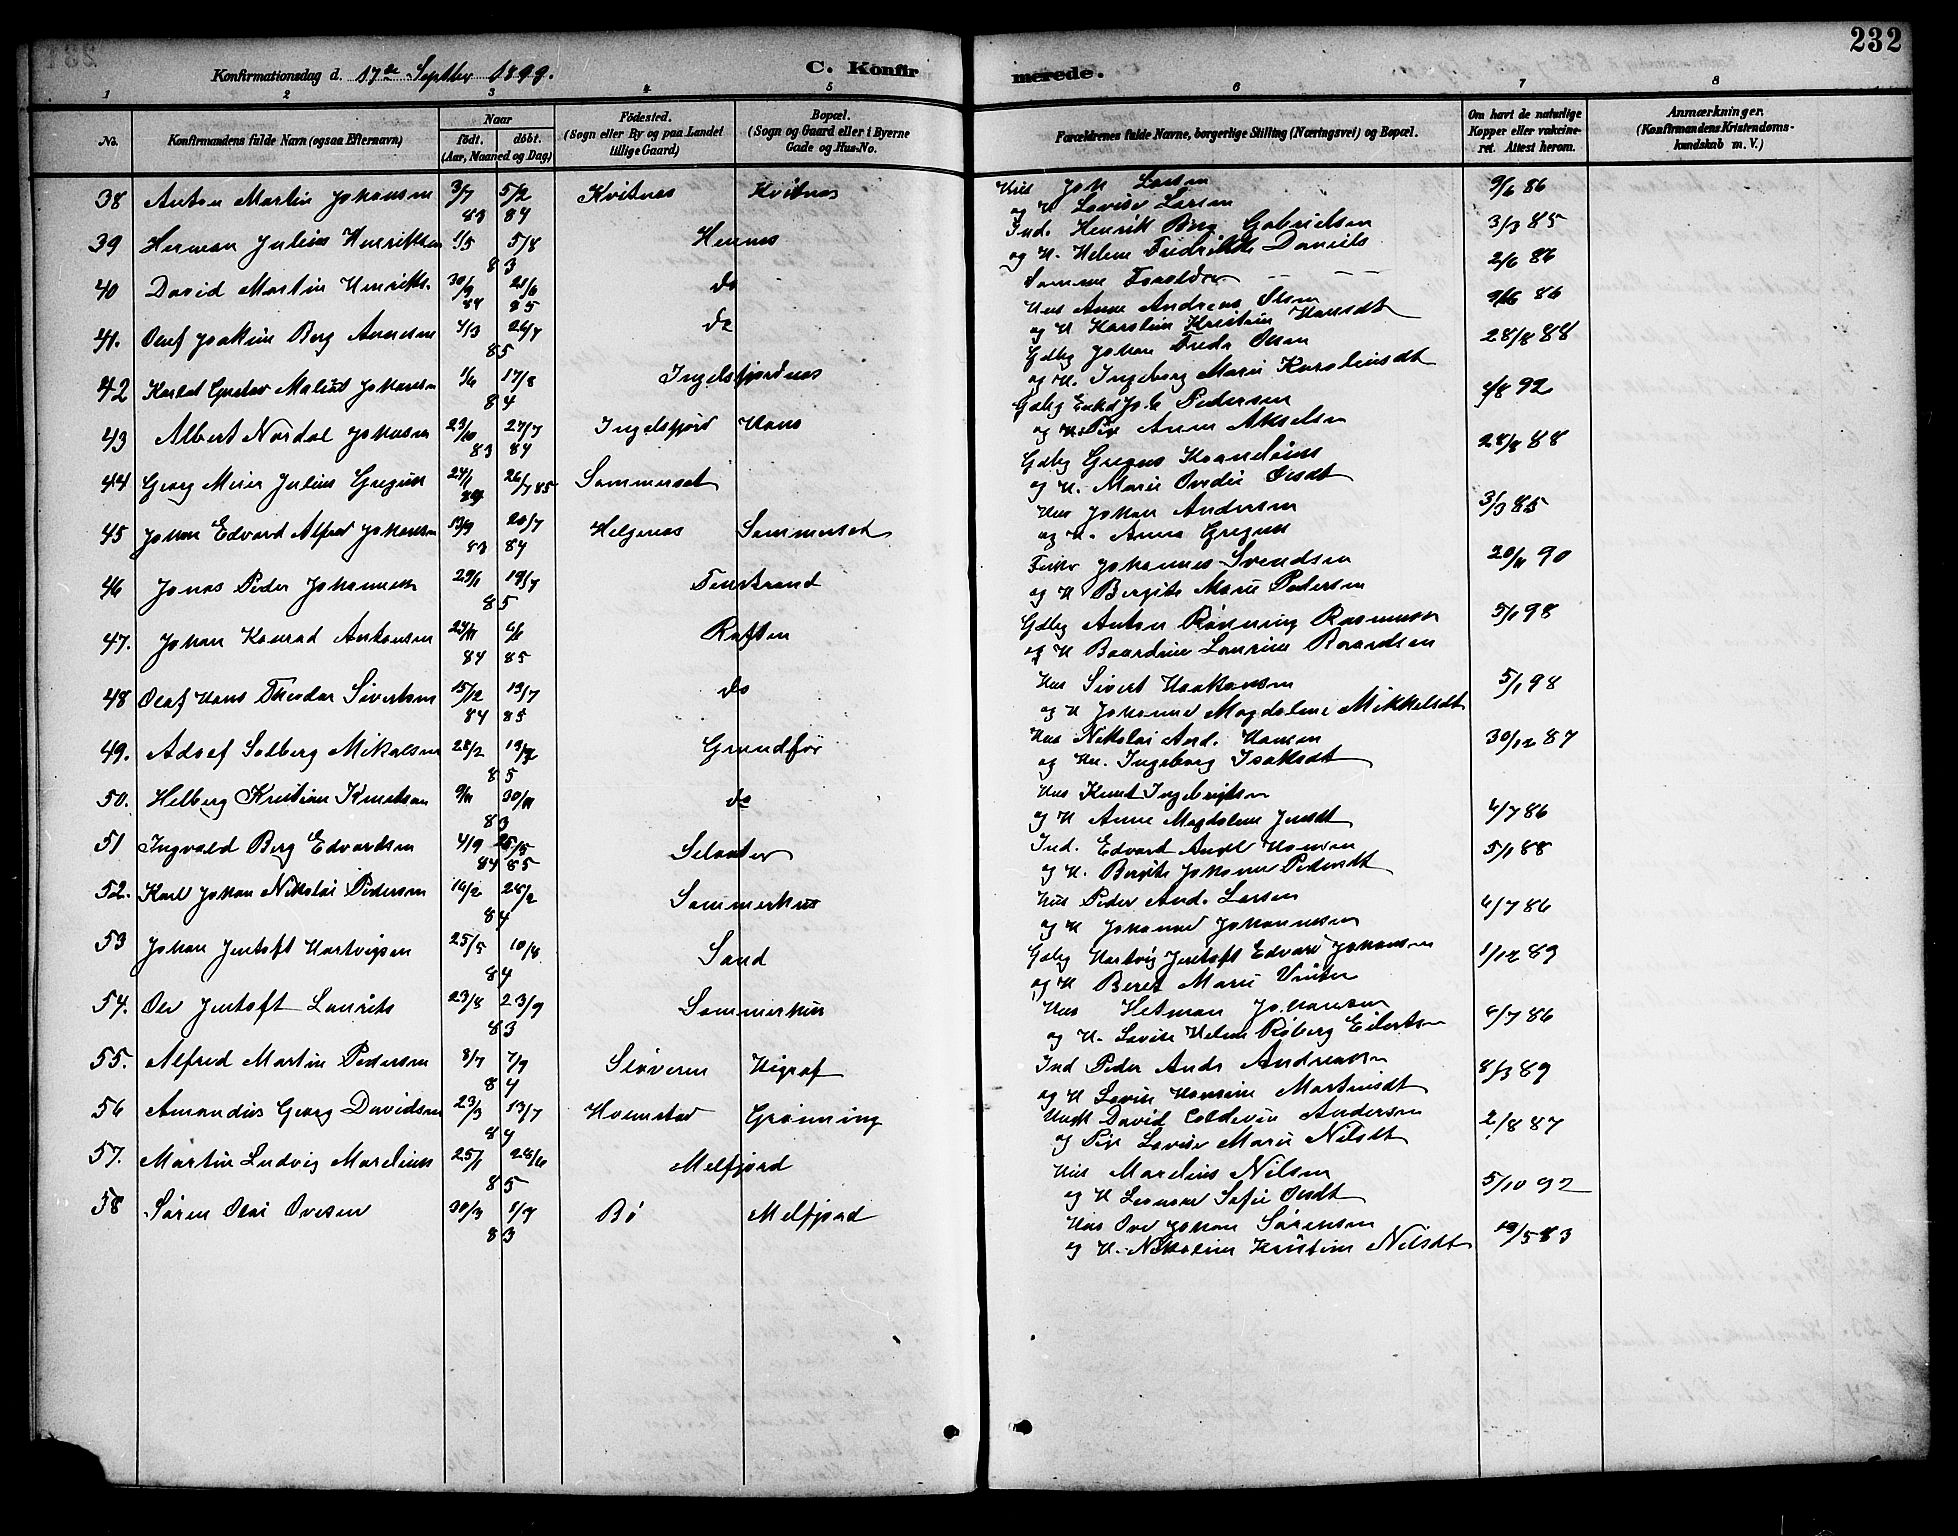 232
Konfirmationsdag d. 17de Septbr 1899.
C. Konfirmerede.
1 2 3 4 5 6 7 8
No.
Konfirmandens fulde Navn (ogsaa Efternavn)
Naar
födt. döbt.
(Aar, Maaned og Dag)
Födested.
(Sogn eller By og paa Landet
tillige Gaard)
Bopæl.
(Sogn og Gaard eller i Byerne
Gade og Hus-No.
Forældrenes fulde Navne, borgerlige Stilling (Næringsvei) og Bopæl.
Om havt de naturlige
Kopper eller vakcine-
ret. Attest herom.
Anmærkninger.
(Konfirmandens Kristendoms-
kundskab m. V.)
38 Anton Martin Johansen 3/7 83 5/2 84 Kvitnes Kvitnes Hus Joh Larsen 9/6 86
og H Lovise Larsen
39 Herman Julius Henriksen 1/5 5/8 83 Hennes Ind. Henrik Berg Gabrielsen 3/3 85
og H. Helene Fredrikke Daniels
40 David Martin Henriks. 30/9 84 21/6 85 do Samme Forældre — — 2/6 86
41. Oluf Joakim Berg Andersen 4/3 26/7 85 do Hus Anne Andreas Olsen 86
og H Karoline Kristine Hansdt
42 Gustav Johansen 1/6 17/8 84 Ingelsfjordnes Gdbg Johan Fredr Olsen 28/8 88
og H. Ingeborg Marie Karoliusdt
43 Albert Nordal Johansen 23/10 83 27/7 84 Ingelsfjord Hans Gdbg Joh Pedersen 4/8 92
og Anne Akselsen
44 Georg Meier Julius Gregus 24/1 84 26/7 85 Sommerset Gdbg Gregus 28/8 88
og H. Marie Olsdt
45 Johan Edvard Alfred Johansen 13/9 83 20/7 84 Helgenes Sommerset Hus Johan Andersen 3/3 85
og H. Anna Gregus
46 Jonas Peder Johannesen 29/1 19/7 85 Finstrand Johannes Svendsen 90
og H Bergite Marie Pedersen
47. Johan Konrad Antonsen 84 85 Raften Gdbg Anton Rönning Rasmussen 5/1 98
og H Baardine Laurine Baardsen
48 Olaf Hans Theodor Sivertsen 15/12 84 19/7 85 do Hus Sivert Haakonsen 5/1 98
og H Johanne Magdalene Mikkelsdt
49. Adolf Solberg Mikalsen 28/2 85 Grundför Hus Nikolai And. Hansen 30/12 87
og Hu. Ingeborg Isaksdt
50. Helberg Kristian Knutsen 9/11 30/11 83 do Hus Knut Ingebrigtsen 4/7 86
og H Anne Magdalene Jensdt
51 Ingvald Berg Edvardsen 4/9 84 25/5 85 Selnater Ind. Edvard Hansen 5/1 88
og H. Bergite Johanne Pedersdt
52. Karl Johan Nikolai Pedersen 28/2 84 Sommerhus Hus Peder And. Larsen 4/7 86
og H Johanne Johannesen
53 Johan Jentoft Hartvigsen 25/5 10/8 84 Sand Gdbg Hartvig Jentoft Edvard Johansen 1/12 89
og H Beret Marie
54. Ole Jentoft Laurits 23/8 23/9 83 Sommerhus Hus Hetman Johansen 4/7 86
og H. Lovise Helene Röberg Eilertsen
55. Alfred Martin Pedersen 8/7 7/9 84 Slöveren Higraf Ind Peder Andr Andreassen 8/3 89
og H Lovise Hansine Martinusdt
56 Amandus Georg Davidsen 23/3 13/7 84 Holmstad Grönning Ungk David Coldevin Andersen 2/8 87
og Pige Lovise Marie Nilsdt
57. Martin Ludvig Marelius 25/1 28/6 85 Melfjord Hus Marelius Nilsen 5/10 92
og H Leonore Sofie Olsdt
58 Sören Olai Ovesen 30/3 1/7 83 Bö Melfjord Hus Ove Johan Sörensen 19/5 83
og H. Nikoline Kristine Nilsdt